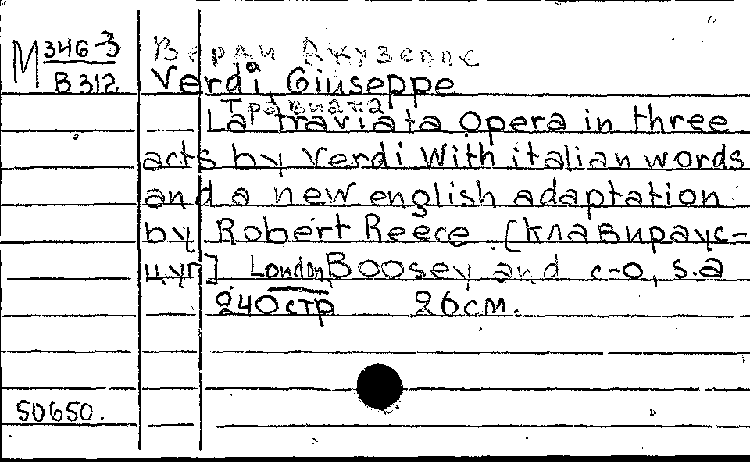 М 346-3 Верди Джузеппе
В 312 Verdi, Giuseppe
Травиата
La traviata opera in three
acts by Verdi With italian words
and a new english adaptation
by Robert Reece. [Клавираус-
цуг] London, Boosey and c-o, s.a
240стр 26см.
50650.